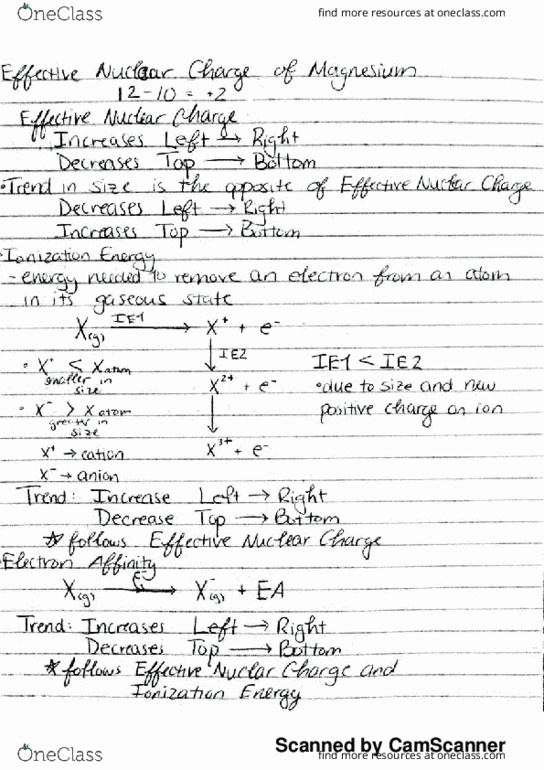 OneClass
find more resources at oneclass.com
Effective Nuclear Charge of Magnesium
12 - 10 = +2
Effective Nuclear Charge
Increases Left → Right
Decreases Top → Bottom
• Trend in size is the opposite of Effective Nuclar Charge
Decreases Left → Right
Increases Top → Bottom
• Ionization Energy
- energy needed to remove an electron from an atom
in its gaseous state
X(g) IE1 → X⁺ + e⁻
↓ IE2
IE1 < IE2
• X⁺ < X atom
smaller in
size
X²⁺ + e⁻
• due to size and new
positive charge on ion
• X⁻ > X atom
greater in
size
↓
X³⁺ + e⁻
X⁺ → cation
X⁻ → anion
Trend: Increase Left → Right
Decrease Top → Bottom
* follows Effective Nuclear Charge
• Electron Affinity
X(g) e⁻ → X⁻(g) + EA
Trend: Increases Left → Right
Decreases Top → Bottom
* follows Effective Nuclar Charge and
Ionization Energy
Scanned by CamScanner
OneClass
find more resources at oneclass.com